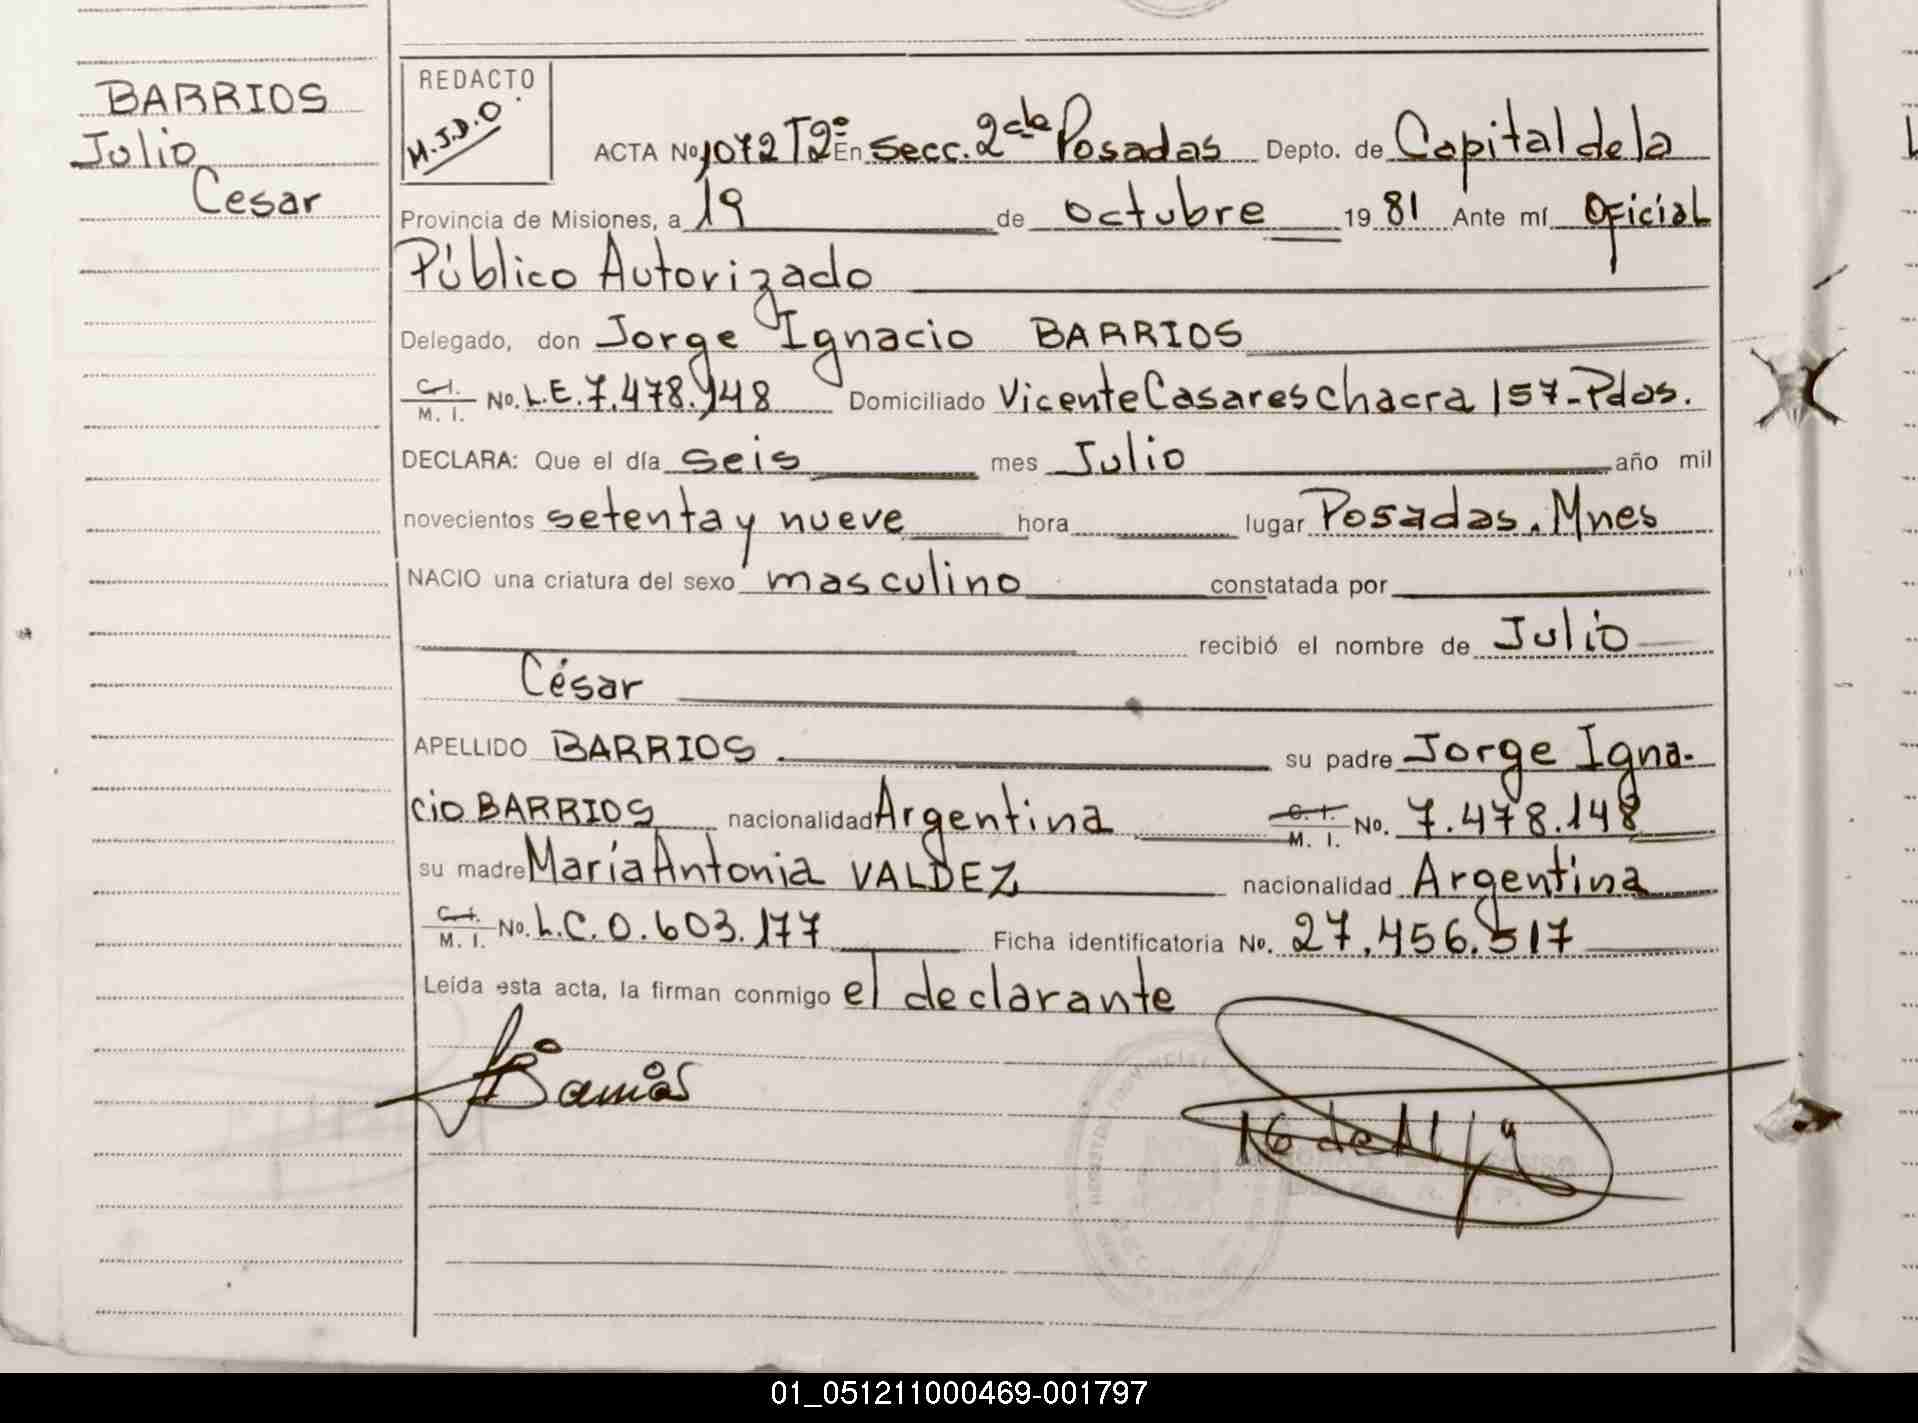 BARRIOS
Julio
Cesar
REDACTO
M.J.D.O.
ACTA No. 1072 T2º En Secc. 2da Posadas Depto. de Capital de la
Provincia de Misiones, a 19 de octubre 1981 Ante mí Oficial
Público Autorizado
Delegado, don Jorge Ignacio BARRIOS
C.I. M. I. No. L.E. 7.478.148 Domiciliado Vicente Casares chacra 157-Pdas.
DECLARA: Que el día seis mes Julio año mil
novecientos setenta y nueve hora lugar Posadas. Mnes
NACIO una criatura del sexo masculino constatada por
recibió el nombre de Julio
César
APELLIDO BARRIOS su padre Jorge Igna-
cio BARRIOS nacionalidad Argentina C. I. M. I. No. 7.478.148
su madre María Antonia VALDEZ nacionalidad Argentina
C.I. M. I. No. L.C. 0.603.177 Ficha identificatoria No. 27.456.517
Leída esta acta, la firman conmigo el declarante
Barrios
01_051211000469-001797